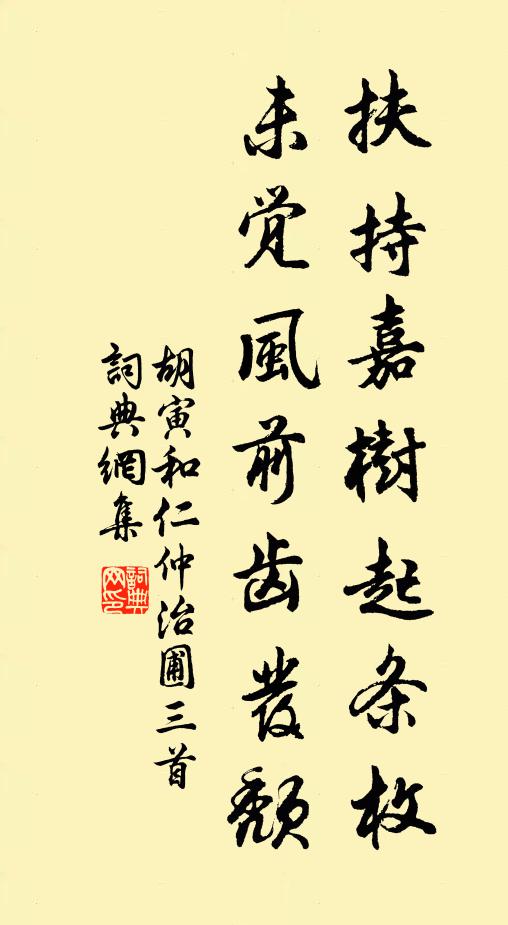 扶持嘉樹起条枚
未觉風前齿發颓
胡寅和仁仲治圃三首
詞典網集
詞典
网印